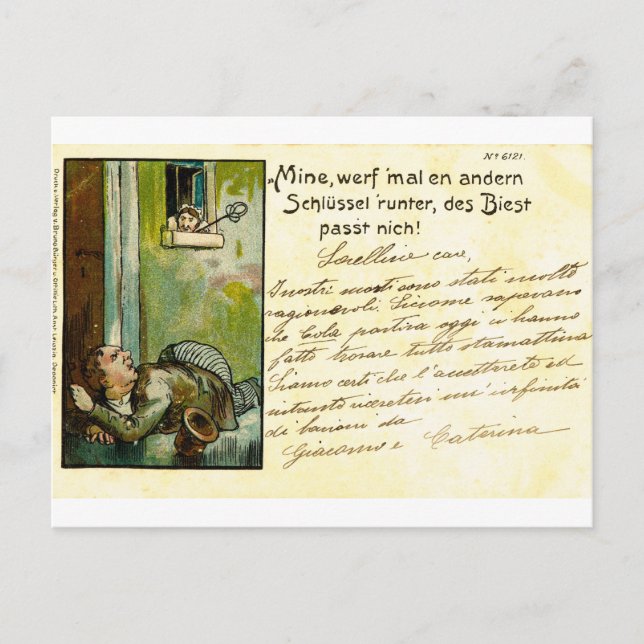 Nº 6121.
„Mine, werf 'mal en andern
Schlüssel 'runter, des Biest
passt nich!
Sorelline care,
I nostri morti sono stati molto
ragionevoli. Siccome sapevano
che Cola partira oggi ci hanno
fatto trovare tutto stamattina
Siamo certi che l'accetterete ed
intanto ricevetevi un' infinità
di bacioni da
Giacomo e Caterina
Druck u. Verlag v. Bruno Bürger & Ottillie Lith. Anst. Leipzig.